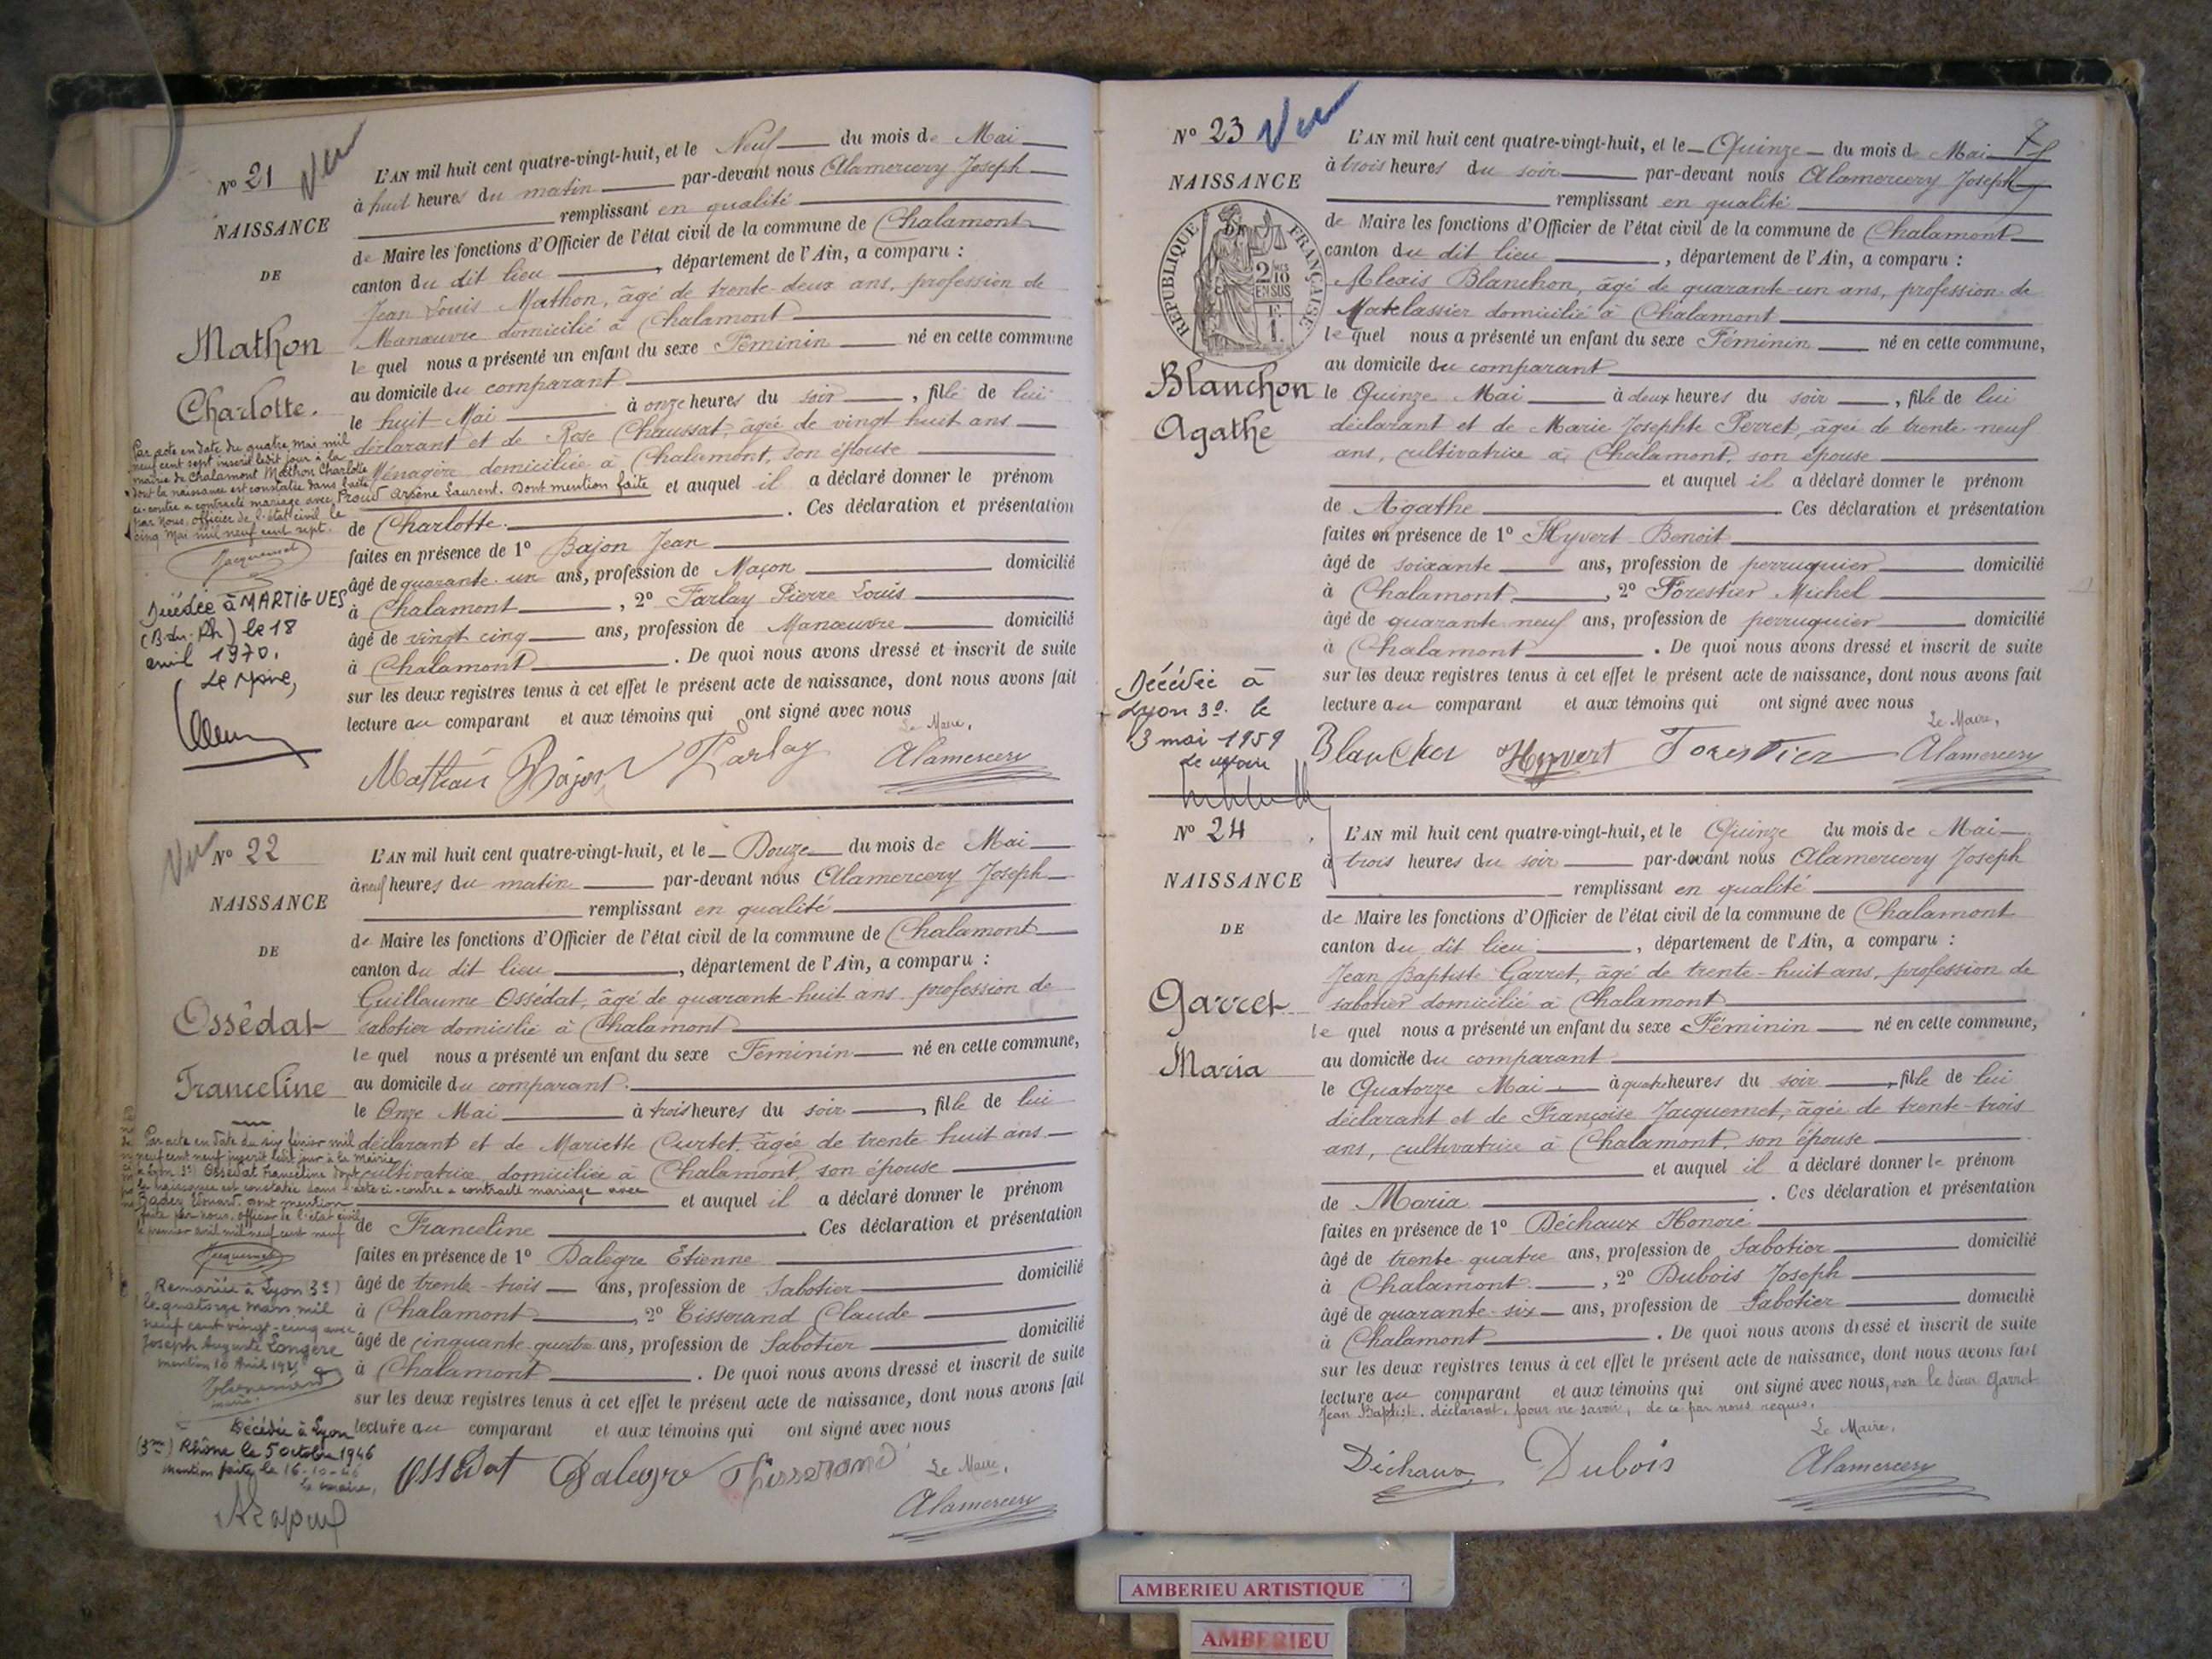 N° 21 Vu
NAISSANCE
DE
Mathon
Charlotte.
Par acte en date du quatre mai mil
neuf cent sept inscrit ledit jour à la
mairie de Chalamont Mathon Charlotte
dont la naissance est constatée dans l'acte
ci-contre a contracté mariage avec Proud Arsène Laurent. Dont mention faite
par nous, officier de l'état civil le
cinq Mai mil neuf cent sept.
Jacquemet
Décédée à MARTIGUES
(B. du. Rh) le 18
avril 1970.
Le Maire,
L'AN mil huit cent quatre-vingt-huit, et le Neuf du mois de Mai
à huit heures du matin par-devant nous Alamercery Joseph
remplissant en qualité
de Maire les fonctions d'Officier de l'état civil de la commune de Chalamont
canton du dit lieu, département de l'Ain, a comparu :
Jean Louis Mathon, âgé de trente-deux ans, profession de
Manœuvre domicilié à Chalamont
le quel nous a présenté un enfant du sexe Féminin né en cette commune
au domicile du comparant
le huit Mai à onze heures du soir, fille de lui
déclarant et de Rose Chaussat, âgée de vingt huit ans
Ménagère domiciliée à Chalamont, son épouse
et auquel il a déclaré donner le prénom
de Charlotte. Ces déclaration et présentation
faites en présence de 1° Bajon Jean
âgé de quarante-un ans, profession de Maçon domicilié
à Chalamont, 2° Farlay Pierre Louis
âgé de vingt cinq ans, profession de Manœuvre domicilié
à Chalamont. De quoi nous avons dressé et inscrit de suite
sur les deux registres tenus à cet effet le présent acte de naissance, dont nous avons fait
lecture au comparant et aux témoins qui ont signé avec nous
Le Maire,
Mathon Bajon Farlay Alamercery
Vu N° 22
NAISSANCE
DE
Ossédat
Franceline
Par acte en date du six février mil
neuf cent neuf inscrit ledit jour à la Mairie
à Lyon 3e Ossédat Franceline dont
la naissance est constatée dans l'acte ci-contre a contracté mariage avec
Badez Edouard, dont mention
faite par nous, officier de l'état civil
le premier avril mil neuf cent neuf
Jacquemet
Remariée à Lyon (3e)
le quatorze mars mil
neuf cent vingt-cinq avec
Joseph Auguste Longère
mention 10 Avril 1925
Décédée à Lyon
(3me) Rhône le 5 octobre 1946
Mention faite le 16-10-46
le maire,
L'AN mil huit cent quatre-vingt-huit, et le Douze du mois de Mai
à neuf heures du matin par-devant nous Alamercery Joseph
remplissant en qualité
de Maire les fonctions d'Officier de l'état civil de la commune de Chalamont
canton du dit lieu, département de l'Ain, a comparu :
Guillaume Ossédat, âgé de quarante-huit ans profession de
sabotier domicilié à Chalamont
le quel nous a présenté un enfant du sexe Féminin né en cette commune,
au domicile du comparant.
le Onze Mai à trois heures du soir, fille de lui
déclarant et de Mariette Curtet, âgée de trente huit ans
cultivatrice, domiciliée à Chalamont, son épouse
et auquel il a déclaré donner le prénom
de Franceline. Ces déclaration et présentation
faites en présence de 1° Dalègre Etienne
âgé de trente-trois ans, profession de Sabotier domicilié
à Chalamont, 2° Tisserand Claude
âgé de cinquante quatre ans, profession de Sabotier domicilié
à Chalamont. De quoi nous avons dressé et inscrit de suite
sur les deux registres tenus à cet effet le présent acte de naissance, dont nous avons fait
lecture au comparant et aux témoins qui ont signé avec nous
Le Maire,
Ossédat Dalegre Thisserand Alamercery
N° 23 Vu
NAISSANCE
REPUBLIQUE FRANÇAISE
2/10 EN SUS
Blanchon
Agathe
Décédée à
Lyon 3e. le
3 mai 1959
Le maire
L'AN mil huit cent quatre-vingt-huit, et le Quinze du mois de Mai
à trois heures du soir par-devant nous Alamercery Joseph
remplissant en qualité
de Maire les fonctions d'Officier de l'état civil de la commune de Chalamont
canton du dit lieu, département de l'Ain, a comparu :
Alexis Blanchon, âgé de quarante-un ans, profession de
Matelassier domicilié à Chalamont
le quel nous a présenté un enfant du sexe Féminin né en cette commune,
au domicile du comparant
le Quinze Mai à deux heures du soir, fille de lui
déclarant et de Marie Josephte Perret, âgée de trente-neuf
ans, cultivatrice à Chalamont, son épouse
et auquel il a déclaré donner le prénom
de Agathe Ces déclaration et présentation
faites en présence de 1° Hyvert Benoit
âgé de soixante ans, profession de perruquier domicilié
à Chalamont, 2° Forestier Michel
âgé de quarante neuf ans, profession de perruquier domicilié
à Chalamont. De quoi nous avons dressé et inscrit de suite
sur les deux registres tenus à cet effet le présent acte de naissance, dont nous avons fait
lecture au comparant et aux témoins qui ont signé avec nous
Le Maire,
Blanchon Hyvert Forestier Alamercery
N° 24
NAISSANCE
DE
Garret
Maria
L'AN mil huit cent quatre-vingt-huit, et le Quinze du mois de Mai
à trois heures du soir par-devant nous Alamercery Joseph
remplissant en qualité
de Maire les fonctions d'Officier de l'état civil de la commune de Chalamont
canton du dit lieu, département de l'Ain, a comparu :
Jean Baptiste Garret, âgé de trente-huit ans, profession de
sabotier domicilié à Chalamont
le quel nous a présenté un enfant du sexe Féminin né en cette commune,
au domicile du comparant
le Quatorze Mai à quatre heures du soir, fille de lui
déclarant et de Françoise Jacquemet, âgée de trente-trois
ans, cultivatrice à Chalamont, son épouse
et auquel il a déclaré donner le prénom
de Maria. Ces déclaration et présentation
faites en présence de 1° Déchaux Honoré
âgé de trente quatre ans, profession de Sabotier domicilié
à Chalamont, 2° Dubois Joseph
âgé de quarante-six ans, profession de Sabotier domicilié
à Chalamont. De quoi nous avons dressé et inscrit de suite
sur les deux registres tenus à cet effet le présent acte de naissance, dont nous avons fait
lecture au comparant et aux témoins qui ont signé avec nous, non le sieur Garret
Jean Baptiste, déclarant, pour ne savoir, de ce par nous requis.
Le Maire,
Déchaux Dubois Alamercery
AMBERIEU ARTISTIQUE
AMBERIEU